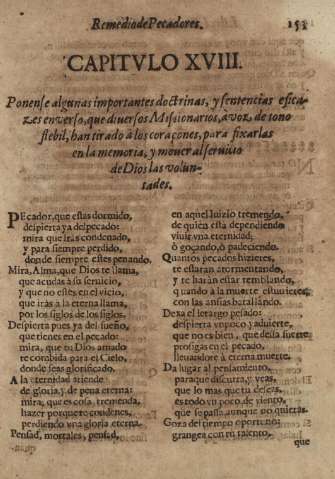 Remedio de Pecadores. 153
CAPITVLO XVIII.
Ponense algunas importantes doctrinas, y sentencias efica-
zes en verso, que diversos Missionarios, a voz, de tono
flebil, han tirado à los coraçones, para fixarlas
en la memoria, y mover al servicio
de Dios las volun-
tades.
PEcador, que estas dormido,
despierta ya del pecado:
mira que iràs condenado,
y para siempre perdido,
donde siempre estès penando.
Mira, Alma, que Dios te llama,
que acudas à su servicio,
y que no estès en el vicio,
que iràs à la eterna llama,
por los siglos de los siglos.
Despierta pues ya del sueño,
que tienes en el pecado:
mira, que tu Dios amado
te combida para el Cielo,
donde seas glorificado.
A la eternidad atiende
de gloria, y de pena eterna:
mira, que es cosa tremenda,
hazer porque te condenes,
perdiendo una gloria eterna.
Pensad, mortales, pensad,
en aquel Iuizio tremendo,
de quien esta dependiendo
vivir una eternidad,
ò goçando, ò padeciendo.
Quantos pecados hizieres,
te estaran atormentando,
y te haràn estar temblando,
quando à la muerte estuvieres,
con las ansias batallando.
Dexa el letargo pesado:
despierta un poco, y advierte,
que no es bien, que dessa suerte
prosigas en el pecado,
llevandote à eterna muerte.
Da lugar al pensamiento,
para que discurra, y veas,
que lo mas que tu deseas,
es todo un poco de viento,
que se passa aunque no quieras.
Goza del tiempo oportuno:
grangea con tu talento,
que